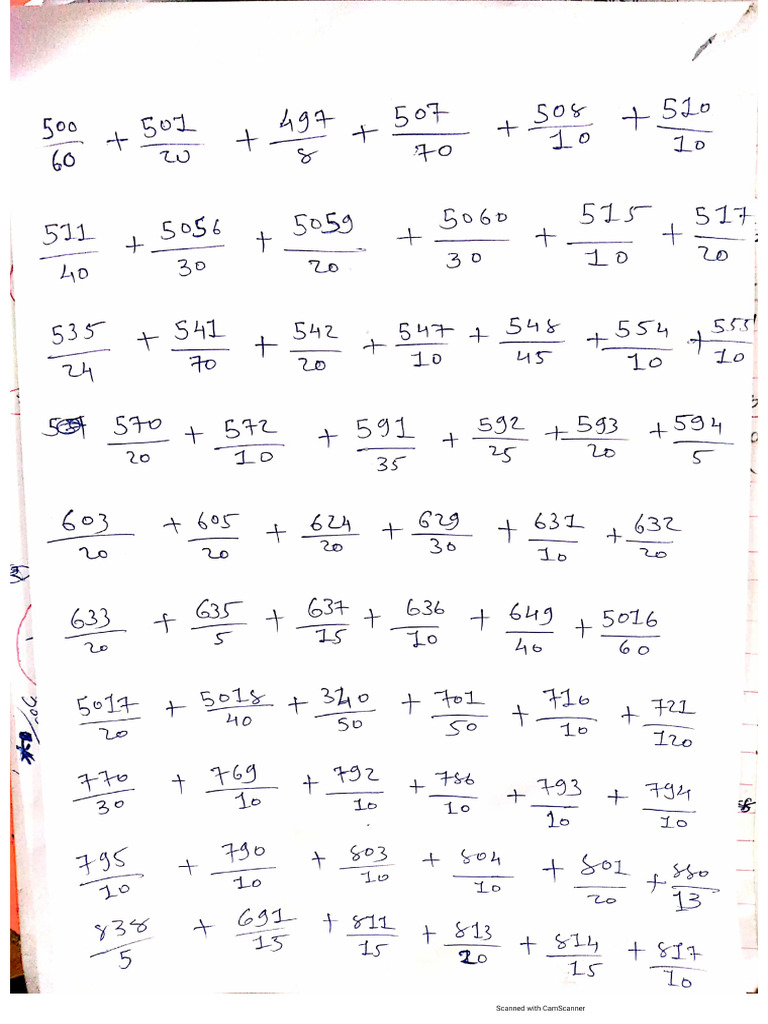 500/60 + 501/20 + 497/8 + 507/70 + 508/10 + 510/10
511/40 + 5056/30 + 5059/20 + 5060/30 + 515/10 + 517/20
535/24 + 541/70 + 542/20 + 547/10 + 548/45 + 554/10 + 553/10
570/20 + 572/10 + 591/35 + 592/25 + 593/20 + 594/5
603/20 + 605/20 + 624/20 + 629/30 + 631/10 + 632/20
633/20 + 635/5 + 637/15 + 636/10 + 649/40 + 5016/60
5017/20 + 5018/40 + 3140/50 + 701/50 + 716/10 + 721/120
770/30 + 769/10 + 792/10 + 786/10 + 793/10 + 794/10
795/10 + 790/10 + 803/10 + 804/10 + 801/20 + 880/13
838/5 + 691/15 + 811/15 + 813/20 + 814/15 + 817/10
Scanned with CamScanner